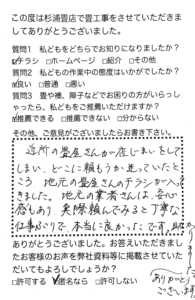 この度は杉浦畳店で畳工事をさせていただきま
してありがとうございました。
質問1 私どもをどちらでお知りになりましたか？
☑チラシ □ホームページ □紹介 □その他
質問2 私どもの作業中の態度はいかがでしたか？
☑良い □普通 □悪い
質問3 畳や襖、障子などでお困りの方がいらっし
ゃったら、私どもをご推薦いただけますか？
☑推薦できる □推薦できない □分からない
その他、ご意見がございましたらお書き下さい。
近所の畳屋さんが店じまいをして
しまい、どこに頼もうか迷っていたと
ころ 地元の畳屋さんのチラシが入って
きました。地元の業者さんは、安心
感もあり、実際頼んでみると丁寧な
仕事ぶりで、本当に良かったです。
ありがとうございました。お答えいただきまし
たお客様のお声を弊社資料等に掲載させていた
だいてもよろしでしょうか？
□許可する ☑匿名なら □許可しない
ありがとう
ございます